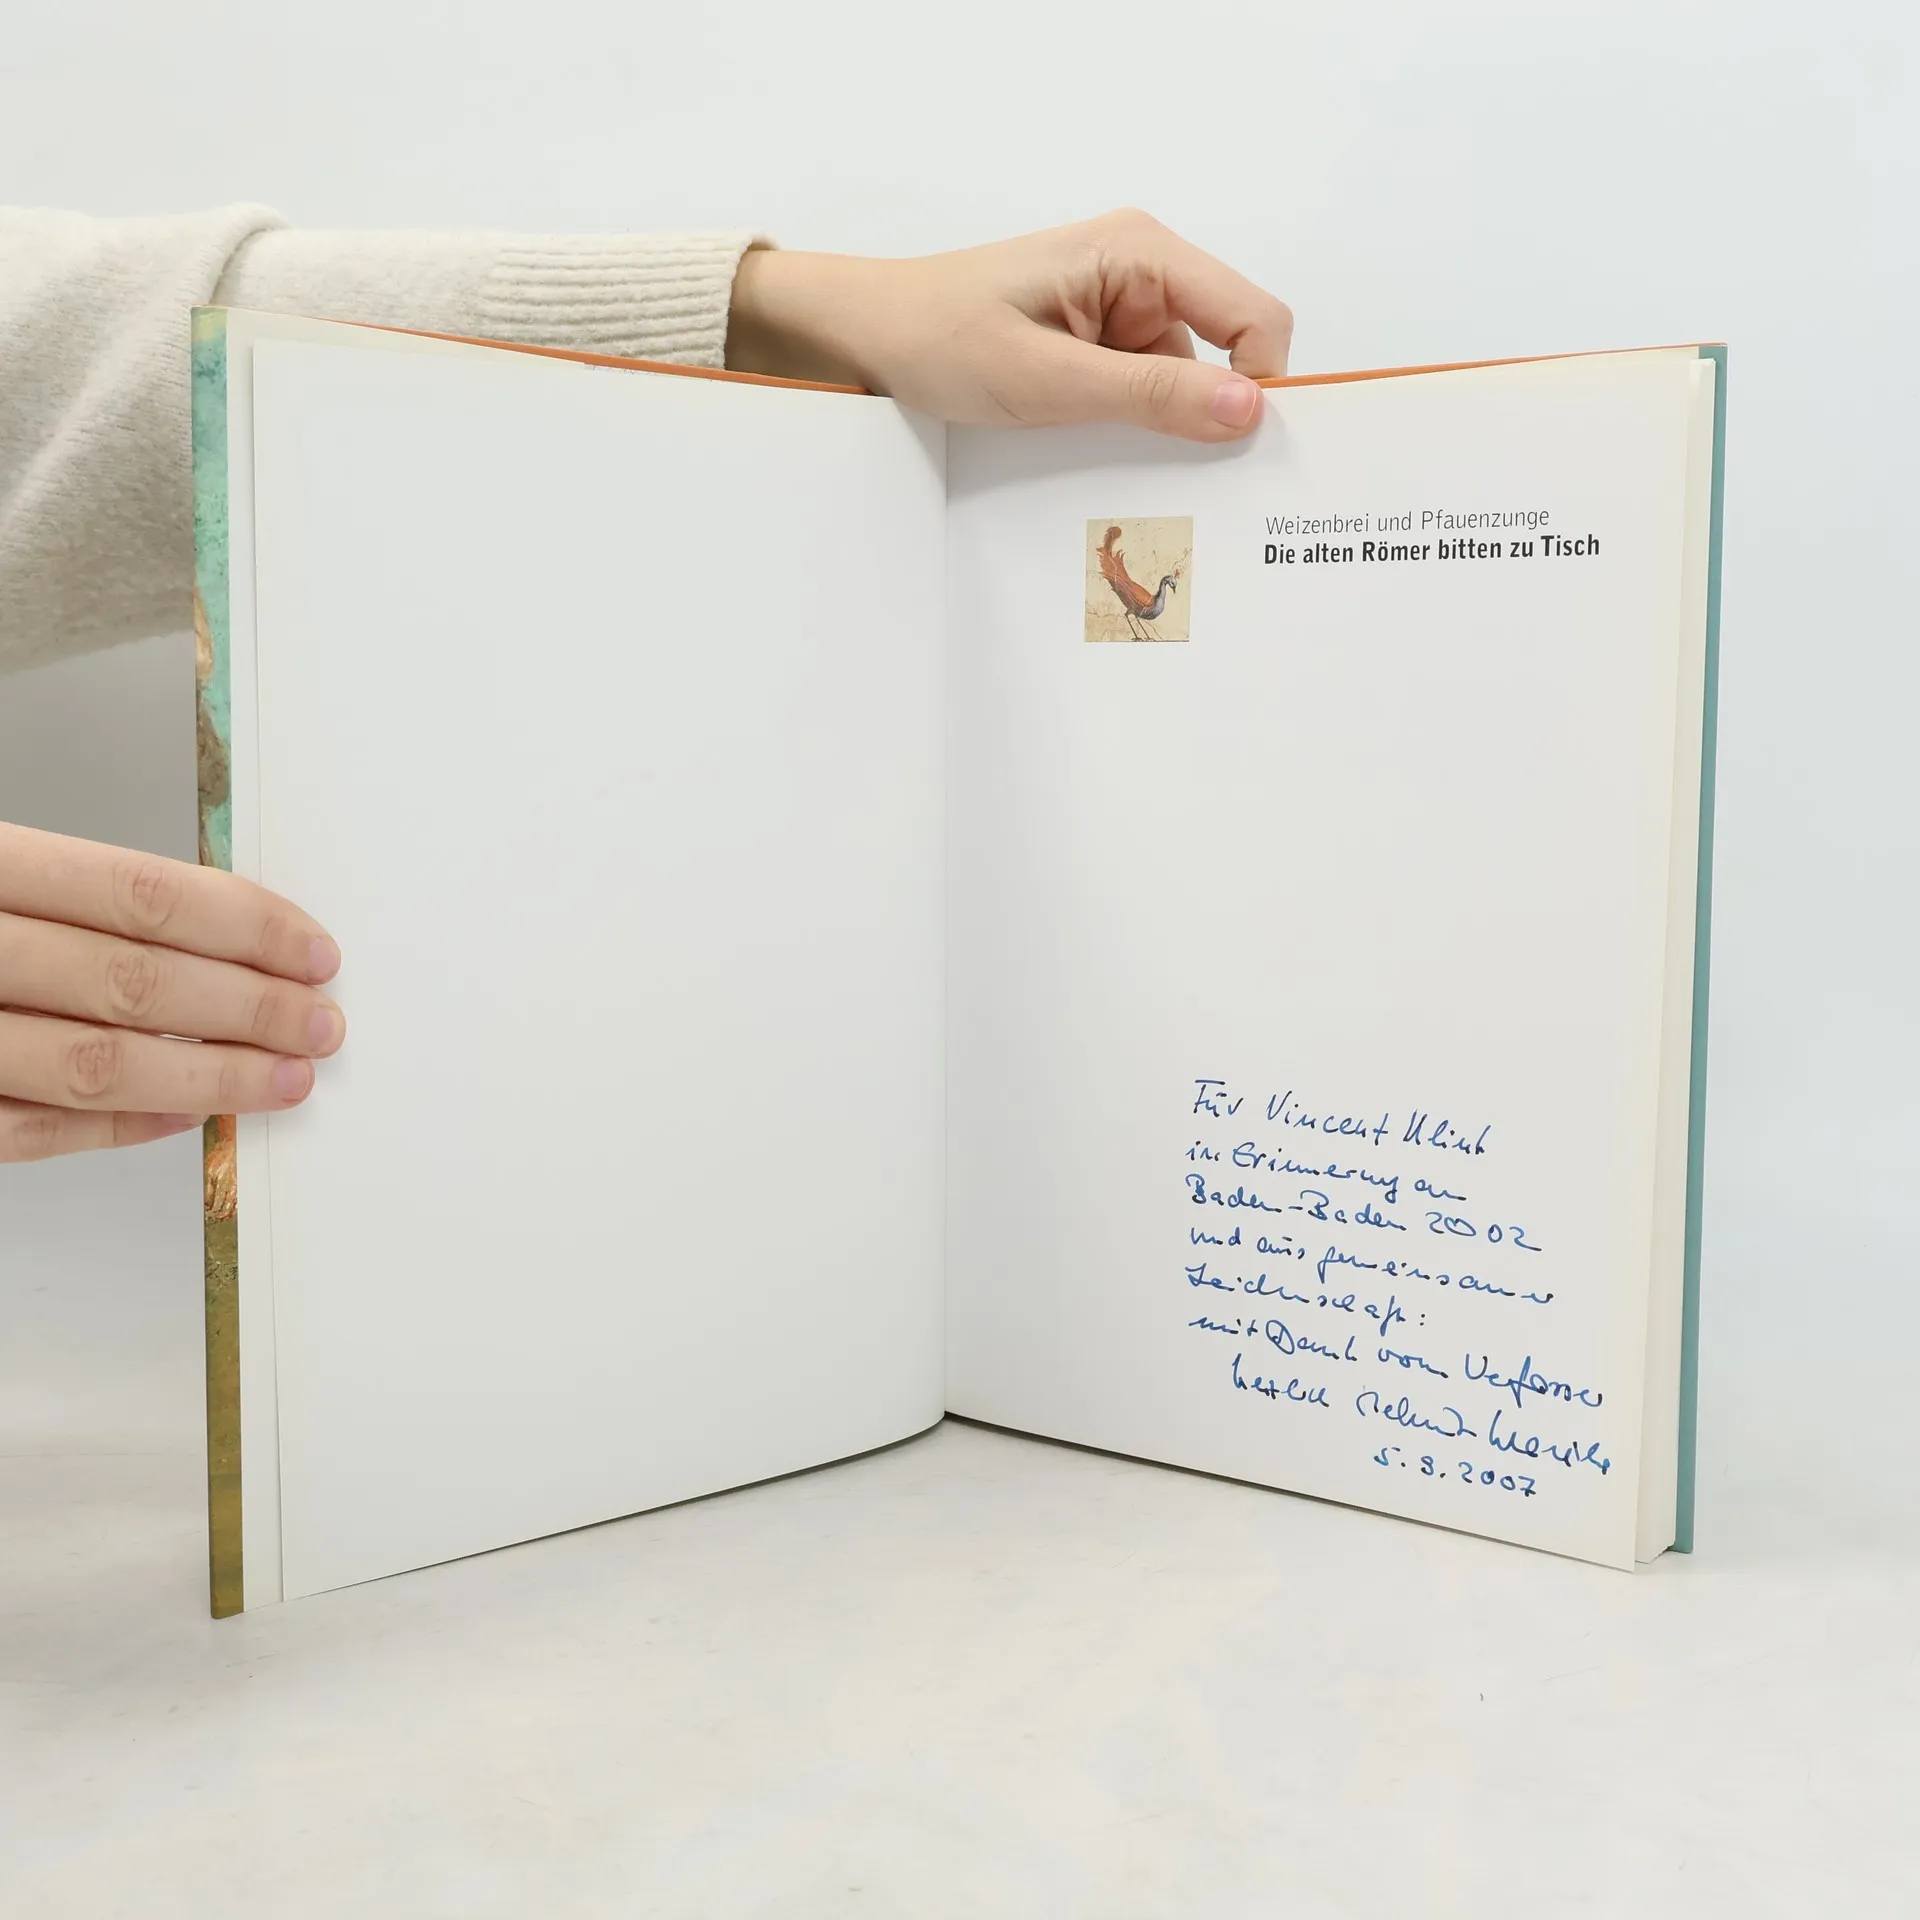 Weizenbrei und Pfauenzunge
Die alten Römer bitten zu Tisch
Für Vincent Klink
in Erinnerung an
Baden-Baden 2002
und aus gemeinsamer
Leidenschaft:
mit Dank vom Verfasser
5. 9. 2007